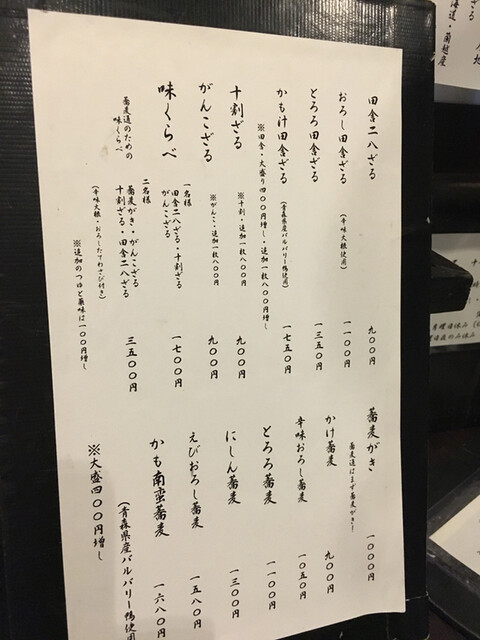 田舎二八ざる 九〇〇円
おろし田舎ざる（辛味大根使用） 一一〇〇円
とろろ田舎ざる 一三五〇円
かも汁田舎ざる（青森県産バルバリー鴨使用） 一七五〇円
※田舎・大盛り四〇〇円増し・追加一枚八〇〇円増し
十割ざる ※十割・追加一枚八〇〇円 九〇〇円
がんこざる ※がんこ・追加一枚八〇〇円 九〇〇円
味くらべ 一名様 田舎二八ざる・十割ざる
がんこざる 一七〇〇円
蕎麦通のための
味くらべ
二名様 蕎麦がき・がんこざる
十割ざる・田舎二八ざる 三五〇〇円
（辛味大根・おろしたてわさび付き）
※追加のつゆと薬味は一〇〇円増し
蕎麦がき 一〇〇〇円
蕎麦通はまず蕎麦がき！
かけ蕎麦 九〇〇円
辛味おろし蕎麦 一〇五〇円
とろろ蕎麦 一一〇〇円
にしん蕎麦 一三〇〇円
えびおろし蕎麦 一五八〇円
かも南蛮蕎麦 一六八〇円
（青森県産バルバリー鴨使用
※大盛四〇〇円増し
海道・蘭越産